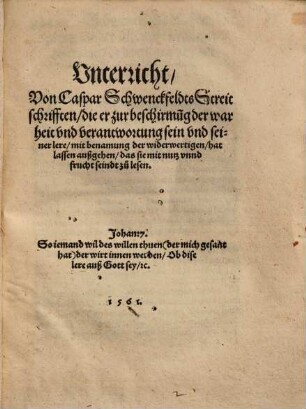 Vnterricht/
Von Caspar Schwenckfeldts Streit
schrifften/die er zur beschirmūg der war
heit vnd verantwortung sein vnd sei-
ner lere/mit benamung der widerwertigen/hat
lassen außgehen/das sie mit nutz vnnd
frucht seindt zů lesen.
Johan:7.
So iemand wil des willen thuen (der mich gesant
hat) der wirt innen werden/ Ob dise
lere auß Gott sey/ꝛc.
1561.